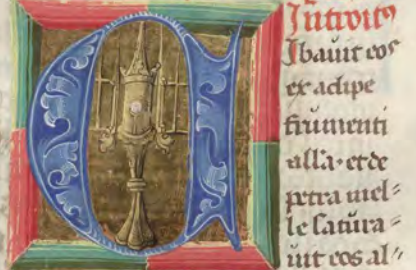 Introitus
Cibavit eos
ex adipe
frumenti
alla· et de
petra mel=
le satura=
uit eos al//